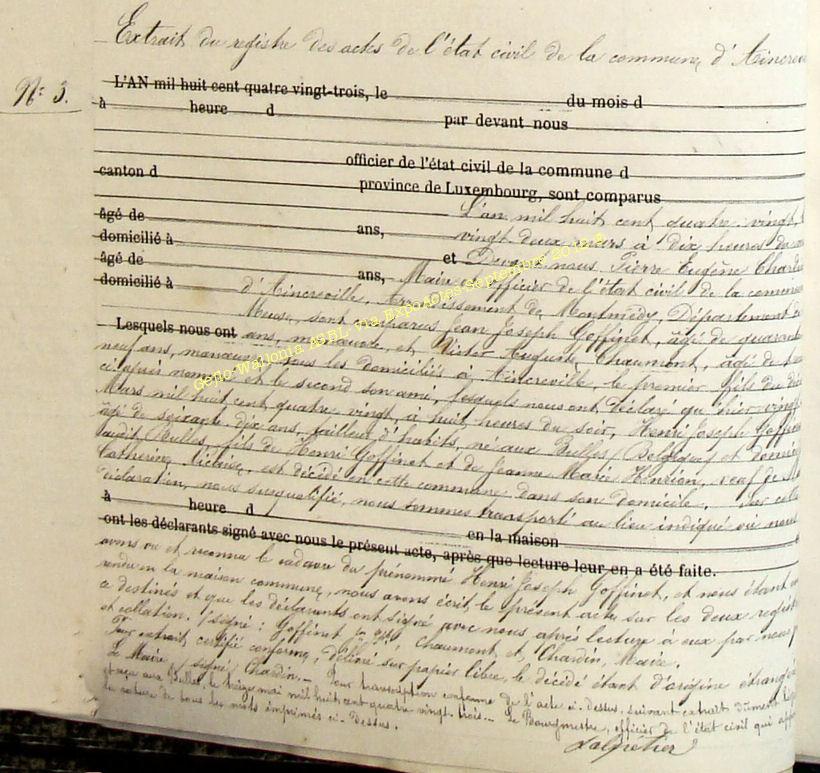 Extrait du registre des actes de l'état civil de la commune d'Aincrev
N° 3.
L'AN mil huit cent quatre vingt-trois, le du mois d
à heure d par devant nous
officier de l'état civil de la commune d
canton d province de Luxembourg, sont comparus
L'an mil huit cent quatre-vingt,
âgé de ans, vingt deux mars à dix heures du
domicilié à et Devant nous Pierre Eugène Chardin
âgé de ans, Maire et officier de l'état civil de la commune
domicilié à d'Aincreville, Arrondissement de Montmédy, Département de
Meuse, sont comparus Jean Joseph Goffinet, âgé de quarante
Lesquels nous ont ans, manœuvre, et, Victor Auguste Chaumont, âgé de
neuf ans, manœuvre, tous les domiciliés à Aincreville, le premier fils du
ci-après nommé et le second son ami, lesquels nous ont déclaré qu'hier vingt
Mars mil huit cent quatre vingt, à huit heures du soir, Henri Joseph Goffin
âgé de soixante dix ans, tailleur d'habits, né aux Bulles (Belgique) et domici
audit Bulles, fils de Henri Goffinet et de Jeanne Marie Henrion, veuf de
Catherine, est décédé en cette commune dans son domicile. Sur cette
déclaration, nous susqualifié, nous sommes transporté au lieu indiqué où nous
à heure d en la maison
ont les déclarants signé avec nous le présent acte, après que lecture leur en a été faite.
avons vu et reconnu le cadavre du prénommé Henri Joseph Goffinet, et nous étant
rendu en la maison commune, nous avons écrit le présent acte sur les deux regist
à ce destinés et que les déclarants ont signé avec nous après lecture à eux par nous
et collation. (signé: Goffinet Chaumont et, Chardin, Maire.
Pour extrait certifié conforme, délivré sur papier libre, le décédé étant d'origine étrangère
Le Maire, signé Chardin. — Pour transcription conforme de l'acte ci-dessus, suivant extrait dûment
aux Bulles, le treize mai mil huit cent quatre vingt-trois. — Le Bourgmestre, officier de l'état civil qui
la rature de tous les mots imprimés ci-dessus.
Geneo-Wallonia ASBL, via ExpoActes septembre 2012